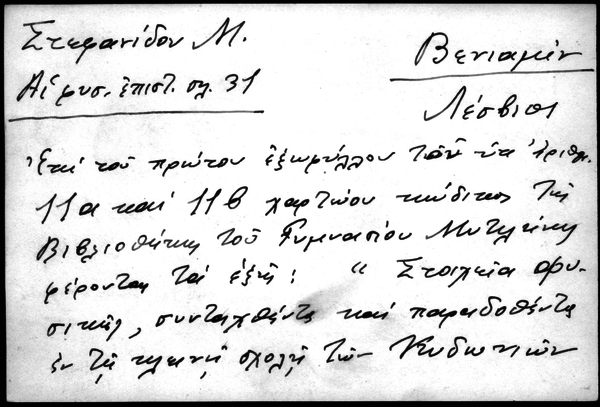 Στεφανίδου Μ.
Αἱ φυσ. ἐπιστ. σλ. 31
Βενιαμίν
Λέσβιοι
Ἐπί τοῦ πρώτου ἐξωφύλλου τῶν ὑπ' ἀριθμ.
11α καί 11β χαρτώου κώδικος τῆς
Βιβλιοθήκης τοῦ Γυμνασίου Μυτιλήνης
φέρονται τά ἑξῆς: " Στοιχεῖα φυ-
σικῆς, συνταχθέντα καί παραδοθέντα
ἐν τῇ κλεινῇ σχολῇ τῶν Κυδωνιῶν